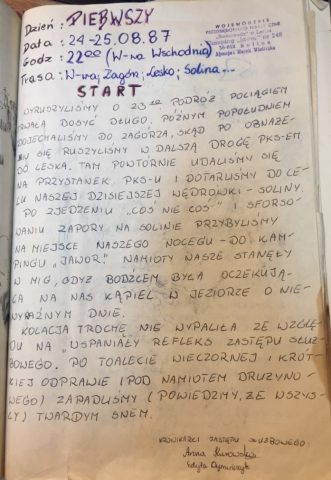 Dzień: PIERWSZY
Data: 24-25.08.87
Godz: 22⁰⁰ (W-wa Wschodnia)
Trasa: W-wa; Zagórz; Lesko; Solina...
START
WYRUSZYLIŚMY O 23⁰⁰ PODRÓŻ POCIĄGIEM
TRWAŁA DOSYĆ DŁUGO. PÓŹNYM POPOŁUDNIEM
DOJECHALIŚMY DO ZAGÓRZA, SKĄD PO
RUSZYLIŚMY W DALSZĄ DROGĘ PKS-EM
DO LESKA. TAM POWTÓRNIE UDALIŚMY SIĘ
NA PRZYSTANEK PKS-U I DOTARLIŚMY DO CE-
LU NASZEJ DZISIEJSZEJ WĘDRÓWKI - SOLINY.
PO ZJEDZENIU „COŚ NIE COŚ" I SFORSO-
WANIU ZAPORY NA SOLINIE PRZYBYLIŚMY
NA MIEJSCE NASZEGO NOCLEGU - DO KAM-
PINGU „JAWOR." NAMIOTY NASZE STANĘŁY
W MIG, GDYŻ BODŹCEM BYŁA OCZEKUJĄ-
CA NA NAS KĄPIEL W JEZIORZE O NIE-
WYRAŹNYM DNIE.
KOLACJA TROCHĘ NIE WYPALIŁA ZE WZGLĘ-
DU NA „WSPANIAŁY REFLEKS ZASTĘPU SŁUŻ-
BOWEGO. PO TOALECIE WIECZORNEJ I KRÓT-
KIEJ ODPRAWIE (POD NAMIOTEM DRUŻYNO-
WEGO) ZAPADLIŚMY (POWIEDZMY, ŻE WSZYS-
CY) TWARDYM SNEM.
KRONIKARKI ZASTĘPU SŁUŻBOWEGO:
Anna
Edyta